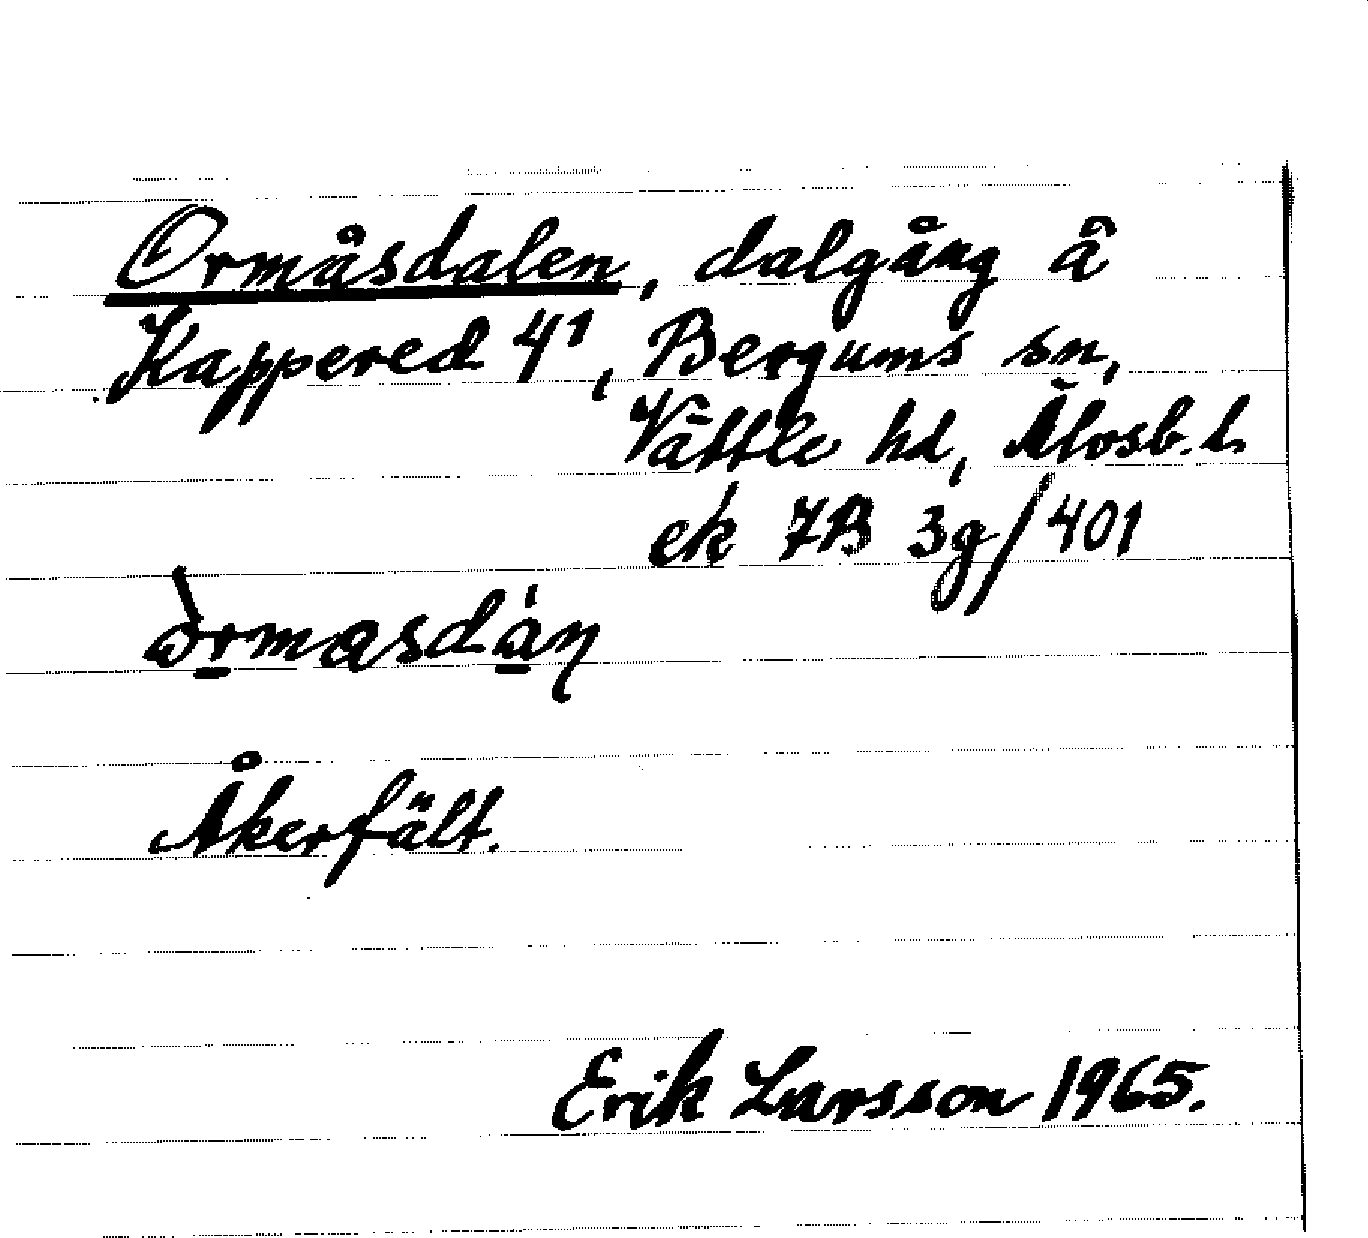 Ormåsdalen, dalgång å
Kappered 4¹, Bergums sn,
Vättle hd, Älvsb. l.
ek 7B 3g/401
òrmasdán
Åkerfält.
Erik Larsson 1965.